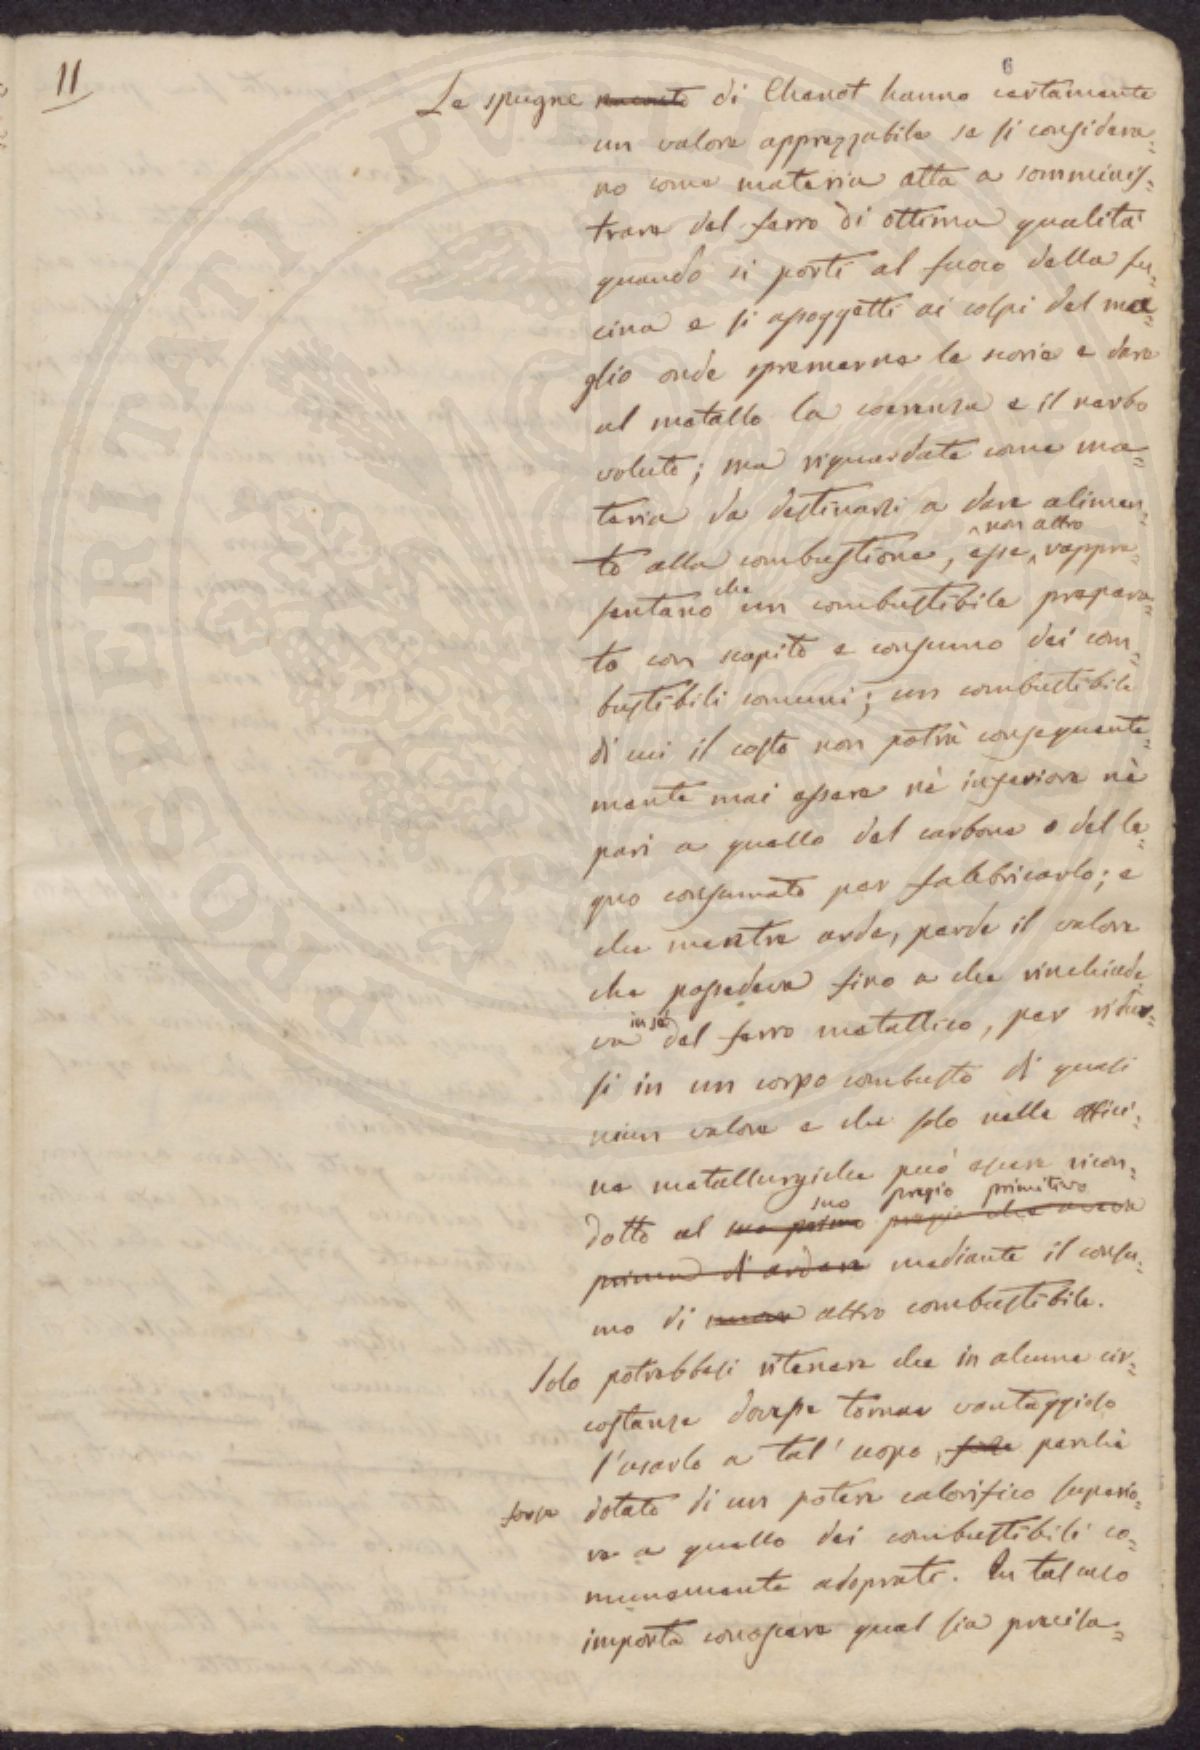 11
6
Le spugne di Chenot hanno certamente
un valore apprezzabile se si considera=
no come materia atta a somminis=
trare del ferro di ottima qualità
quando si porti al fuoco della fu=
cina e si assoggetti ai colpi del ma=
glio onde spremerne le scorie e dare
al metallo la coerenza e il nerbo
voluto; ma riguardate come ma=
teria da destinarsi a dare alimen=
to alla combustione, esse non altro rappre=
sentano che un combustibile prepara=
to con scapito e consumo dei com=
bustibili comuni; un combustibile
di cui il costo non potrà conseguente=
mente mai essere nè inferiore nè
pari a quello del carbone o del le=
gno consumato per fabbricarlo; e
che mentre arde, perde il valore
che possedeva fino a che rinchiude
va in se del ferro metallico, per ridur=
si in un corpo combusto di quasi
niun valore e che solo nelle offici=
ne metallurgiche può essere ricon=
dotto al suo pregio primitivo
prima di ardere mediante il consu=
mo di altro combustibile.
Solo potrebbesi ritenere che in alcune cir=
costanze dovesse tornar vantaggioso
l'usarlo a tal' uopo, perchè
forse dotato di un potere calorifico superio=
re a quello dei combustibili co=
munemente adoprati. In tal caso
importa conoscere qual sia precisa=
POSSPERITATI PVBLI